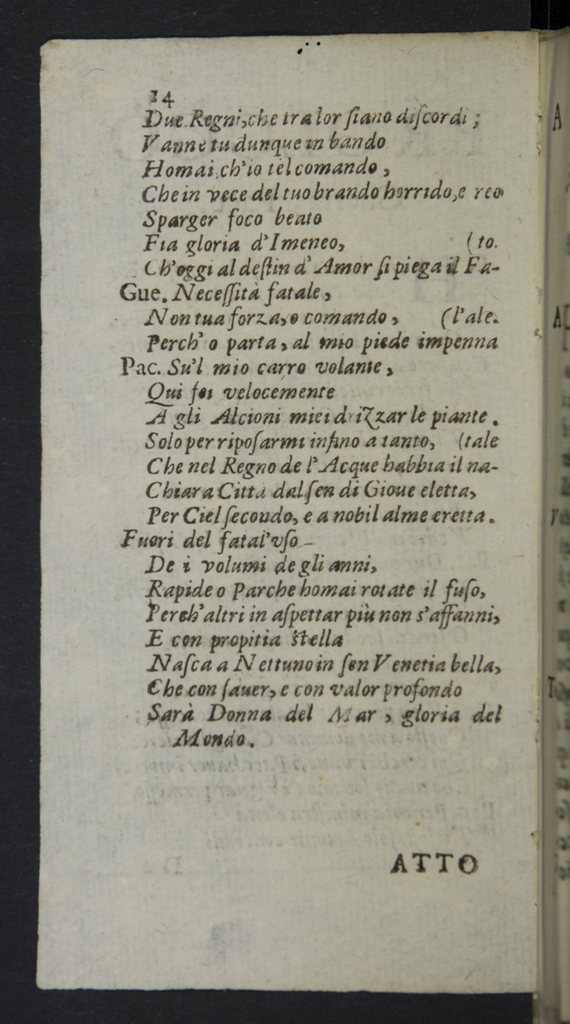 14
Due Regni, che tra lor ſiano diſcordi ;
Vanne tu dunque in bando
Homai, ch'io tel comando ,
Che in vece del tuo brando horrido, e reo
Sparger foco beato
Fia gloria d'Imeneo, (to.
Ch'oggi al deſtin d'Amor ſi piega il Fa-
Gue. Neceſſità fatale ,
Non tua forza, o comando , (l'ale.
Perch' o parta , al mio piede impenna
Pac. Su'l mio carro volante ,
Qui foi velocemente
A gli Alcioni miei drizzar le piante .
Solo per ripoſarmi inſino a tanto, (tale
Che nel Regno de l'Acque habbia il na-
Chiara Città dal ſen di Gioue eletta,
Per Ciel ſecondo, e a nobil alme eretta .
Fuori del fatal'vſo
De i volumi de gli anni,
Rapide o Parche homai rotate il fuſo,
Perch'altri in aſpettar più non s'affanni,
E con propitia ſtella
Naſca a Nettuno in ſen Venetia bella,
Che con ſauer, e con valor profondo
Sarà Donna del Mar , gloria del
Mondo .
ATTO